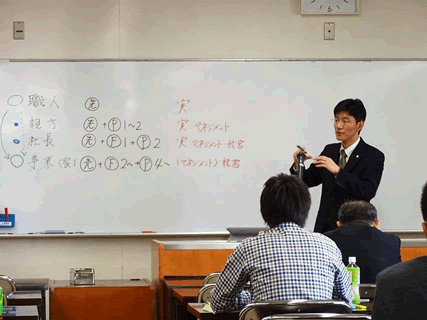 職人 先 実
親方 先+P1~2 実 マネジメント
社長 先+F1+P2 実 マネジメント 経営
事業(家) 先+F2~+P4~ (マネジメント) 経営